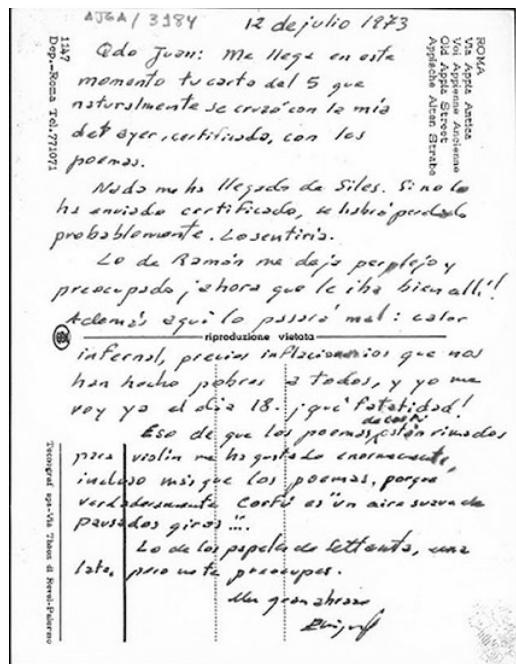 AJGA / 3184
12 de julio 1973
Qdo Juan: Me llega en este
momento tu carta del 5 que
naturalmente se cruzó con la mía
de ayer, certificada, con los
poemas.
Nada me ha llegado de Siles. Si no lo
ha enviado certificado, se habrá perdido
probablemente. Lo sentiría.
Lo de Ramón me deja perplejo y
preocupado ¡ahora que le iba bien allí!
Además aquí lo pasará mal: calor
infernal, precios inflacionarios que nos
han hecho pobres a todos, y yo me
voy ya el día 18. ¡qué fatalidad!
Eso de que los poemas están rimados
para violín me ha gustado enormemente,
incluso más que los poemas, porque
verdaderamente Corfú es "un aire suave de
pausados giros"...
Lo de los papeles de Settanta, una
lata, pero no te preocupes.
Un gran abrazo
ROMA
Via Appia Antica
Voi Appienne Ancienne
Old Appia Street
Appische Alten Strabe
1147
Dep.-Roma Tel.771071
riproduzione vietata
Tecnograf spa-Via Thaon di Revel-Palermo